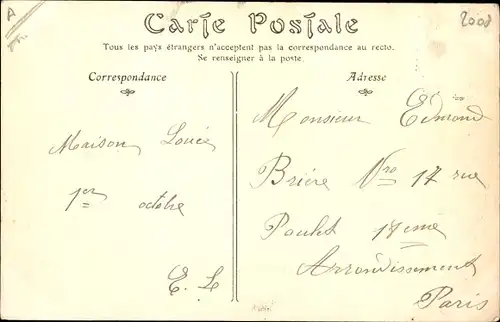 A
2008
Carte Postale
Tous les pays étrangers n'acceptent pas la correspondance au recto.
Se renseigner à la poste.
Correspondance
Adresse
Maison Louée
1er octobre
E. L
Monsieur Edmond
Brière Nro 17 rue
Poulet 17eme
Arrondissement
Paris